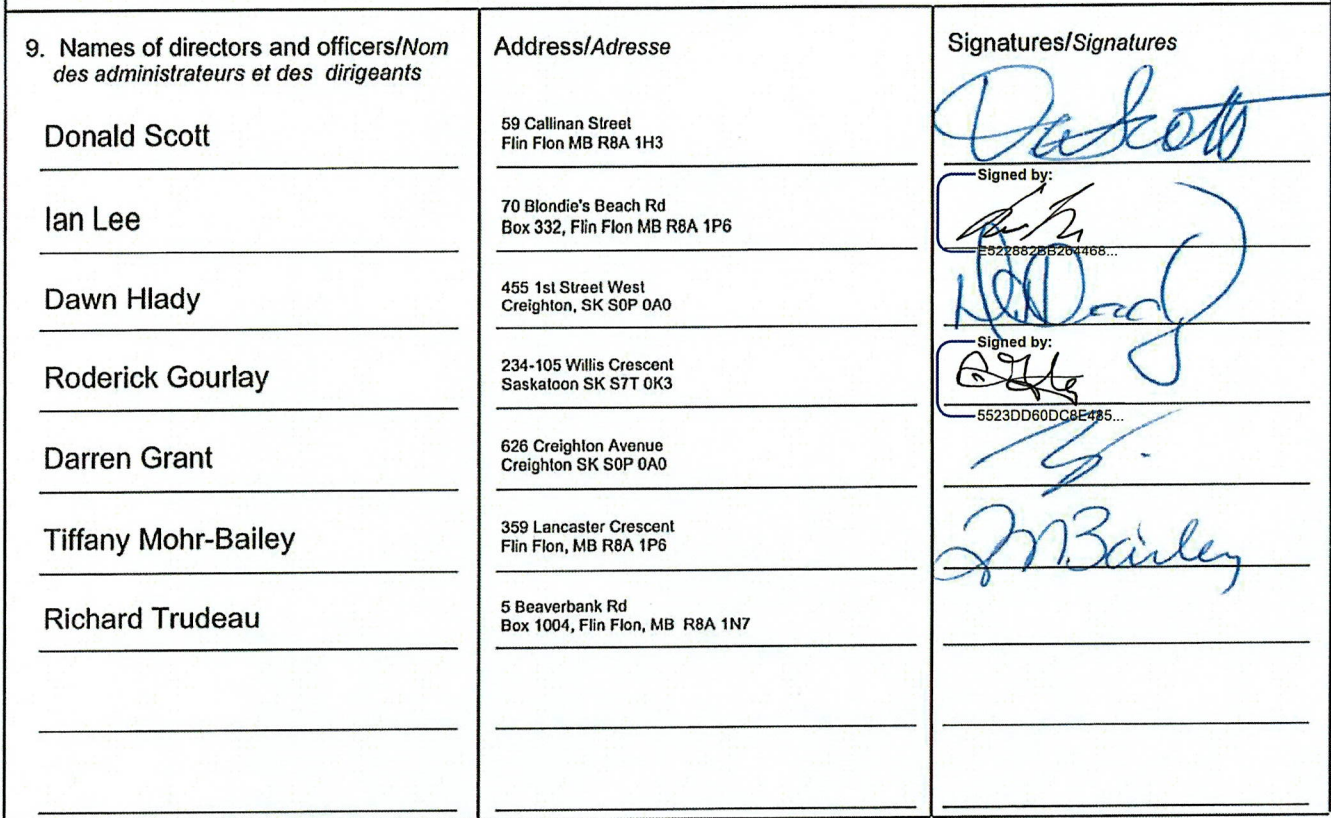 9. Names of directors and officers/Nom
des administrateurs et des dirigeants
Address/Adresse
Signatures/Signatures
Donald Scott
59 Callinan Street
Flin Flon MB R8A 1H3
Ian Lee
70 Blondie's Beach Rd
Box 332, Flin Flon MB R8A 1P6
Signed by:
E522882BB264468...
Dawn Hlady
455 1st Street West
Creighton, SK S0P 0A0
Roderick Gourlay
234-105 Willis Crescent
Saskatoon SK S7T 0K3
Signed by:
5523DD60DC8E485...
Darren Grant
626 Creighton Avenue
Creighton SK S0P 0A0
Tiffany Mohr-Bailey
359 Lancaster Crescent
Flin Flon, MB R8A 1P6
Richard Trudeau
5 Beaverbank Rd
Box 1004, Flin Flon, MB R8A 1N7